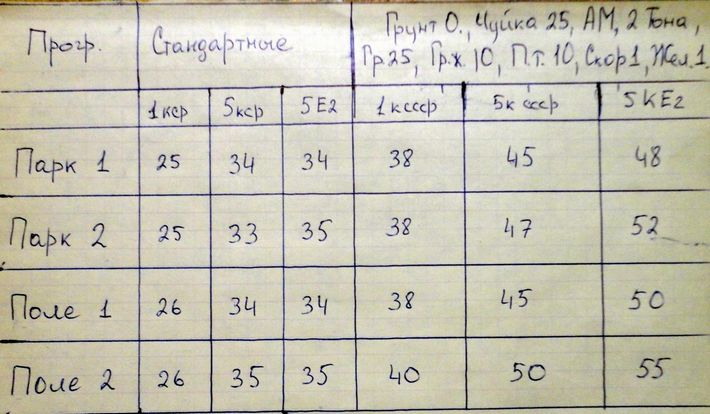 Прогр. Стандартные Грунт 0., Чуйка 25, АМ, 2 Тона,
Гр.25, Гр.ж. 10, П.т. 10, Скор1, Жел.1.
1кср 5кср 5Е2 1кссср 5к ссср 5КЕ2
Парк 1 25 34 34 38 45 48
Парк 2 25 33 35 38 47 52
Поле 1 26 34 34 38 45 50
Поле 2 26 35 35 40 50 55